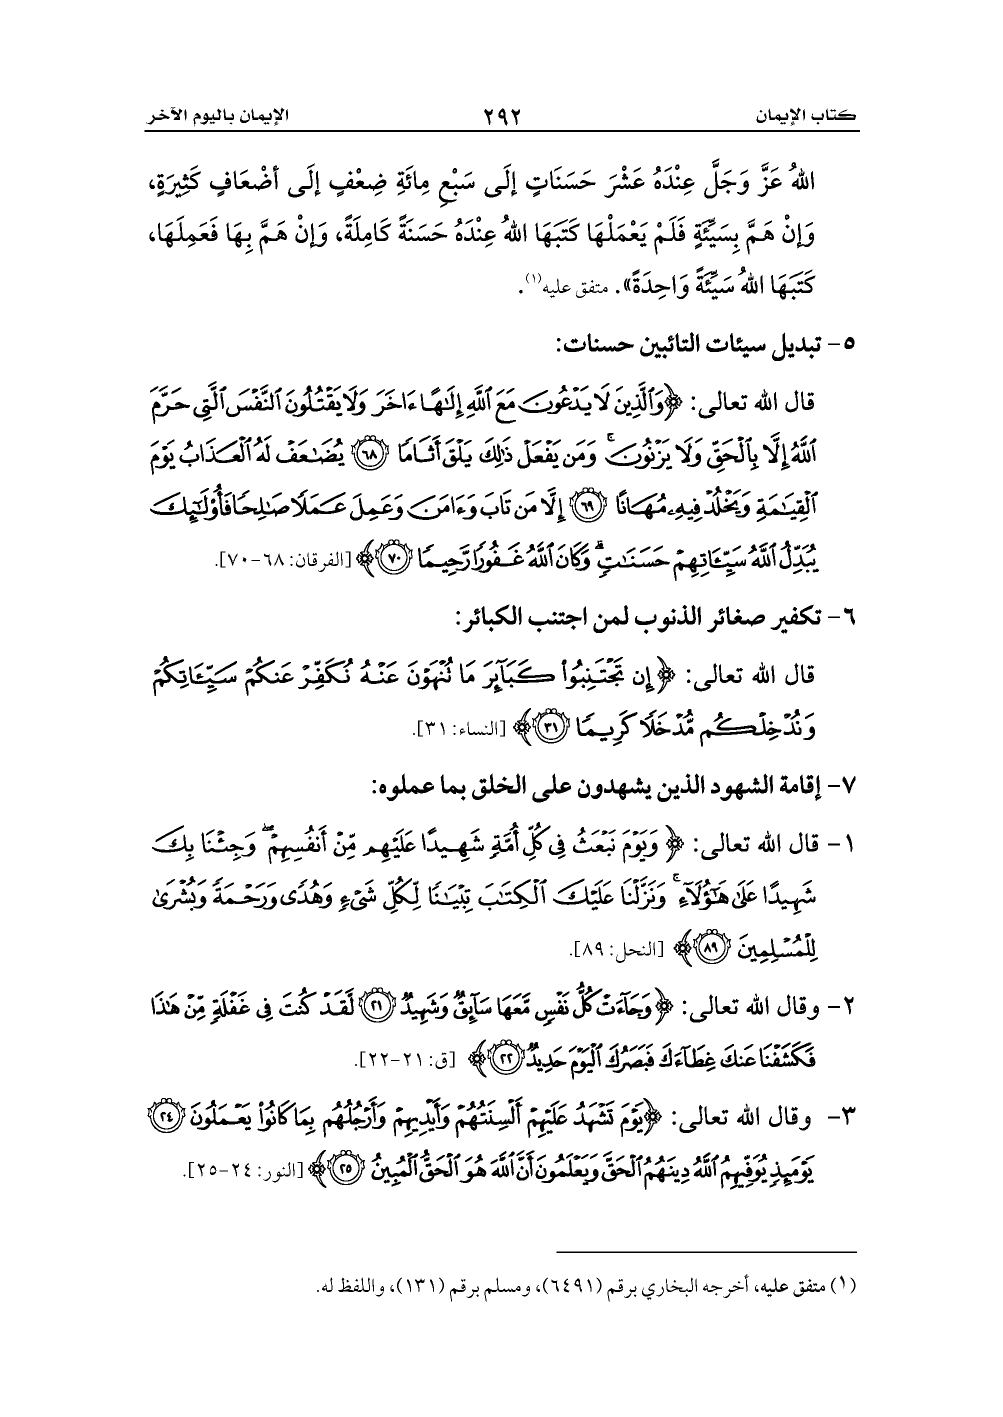 كتاب الإيمان ٢٩٢ الإيمان باليوم الآخر
اللهُ عَزَّ وَجَلَّ عِنْدَهُ عَشْرَ حَسَنَاتٍ إلَى سَبْعِ مِائَةِ ضِعْفٍ إلَى أضْعَافٍ كَثِيرَةٍ،
وَإنْ هَمَّ بِسَيِّئَةٍ فَلَمْ يَعْمَلْهَا كَتَبَهَا اللهُ عِنْدَهُ حَسَنَةً كَامِلَةً، وَإنْ هَمَّ بِهَا فَعَمِلَهَا،
كَتَبَهَا اللهُ سَيِّئَةً وَاحِدَةً». متفق عليه(١).
٥- تبديل سيئات التائبين حسنات:
قال الله تعالى: ﴿وَٱلَّذِينَ لَا يَدْعُونَ مَعَ ٱللَّهِ إِلَـٰهًا ءَاخَرَ وَلَا يَقْتُلُونَ ٱلنَّفْسَ ٱلَّتِى حَرَّمَ
ٱللَّهُ إِلَّا بِٱلْحَقِّ وَلَا يَزْنُونَ ۚ وَمَن يَفْعَلْ ذَٰلِكَ يَلْقَ أَثَامًا ﴿٦٨﴾ يُضَـٰعَفْ لَهُ ٱلْعَذَابُ يَوْمَ
ٱلْقِيَـٰمَةِ وَيَخْلُدْ فِيهِۦ مُهَانًا ﴿٦٩﴾ إِلَّا مَن تَابَ وَءَامَنَ وَعَمِلَ عَمَلًا صَـٰلِحًا فَأُو۟لَـٰٓئِكَ
يُبَدِّلُ ٱللَّهُ سَيِّـَٔاتِهِمْ حَسَنَـٰتٍ ۗ وَكَانَ ٱللَّهُ غَفُورًا رَّحِيمًا ﴿٧٠﴾﴾ [الفرقان: ٦٨-٧٠].
٦- تكفير صغائر الذنوب لمن اجتنب الكبائر:
قال الله تعالى: ﴿إِن تَجْتَنِبُوا۟ كَبَآئِرَ مَا تُنْهَوْنَ عَنْهُ نُكَفِّرْ عَنكُمْ سَيِّـَٔاتِكُمْ
وَنُدْخِلْكُم مُّدْخَلًا كَرِيمًا ﴿٣١﴾﴾ [النساء: ٣١].
٧- إقامة الشهود الذين يشهدون على الخلق بما عملوه:
١- قال الله تعالى: ﴿وَيَوْمَ نَبْعَثُ فِى كُلِّ أُمَّةٍ شَهِيدًا عَلَيْهِم مِّنْ أَنفُسِهِمْ ۖ وَجِئْنَا بِكَ
شَهِيدًا عَلَىٰ هَـٰٓؤُلَآءِ ۚ وَنَزَّلْنَا عَلَيْكَ ٱلْكِتَـٰبَ تِبْيَـٰنًا لِّكُلِّ شَىْءٍ وَهُدًى وَرَحْمَةً وَبُشْرَىٰ
لِلْمُسْلِمِينَ ﴿٨٩﴾﴾ [النحل: ٨٩].
٢- وقال الله تعالى: ﴿وَجَآءَتْ كُلُّ نَفْسٍ مَّعَهَا سَآئِقٌ وَشَهِيدٌ ﴿٢١﴾ لَّقَدْ كُنتَ فِى غَفْلَةٍ مِّنْ هَـٰذَا
فَكَشَفْنَا عَنكَ غِطَآءَكَ فَبَصَرُكَ ٱلْيَوْمَ حَدِيدٌ ﴿٢٢﴾﴾ [ق: ٢١-٢٢].
٣- وقال الله تعالى: ﴿يَوْمَ تَشْهَدُ عَلَيْهِمْ أَلْسِنَتُهُمْ وَأَيْدِيهِمْ وَأَرْجُلُهُم بِمَا كَانُوا۟ يَعْمَلُونَ ﴿٢٤﴾
يَوْمَئِذٍ يُوَفِّيهِمُ ٱللَّهُ دِينَهُمُ ٱلْحَقَّ وَيَعْلَمُونَ أَنَّ ٱللَّهَ هُوَ ٱلْحَقُّ ٱلْمُبِينُ ﴿٢٥﴾﴾ [النور: ٢٤-٢٥].
(١) متفق عليه، أخرجه البخاري برقم (٦٤٩١)، ومسلم برقم (١٣١)، واللفظ له.